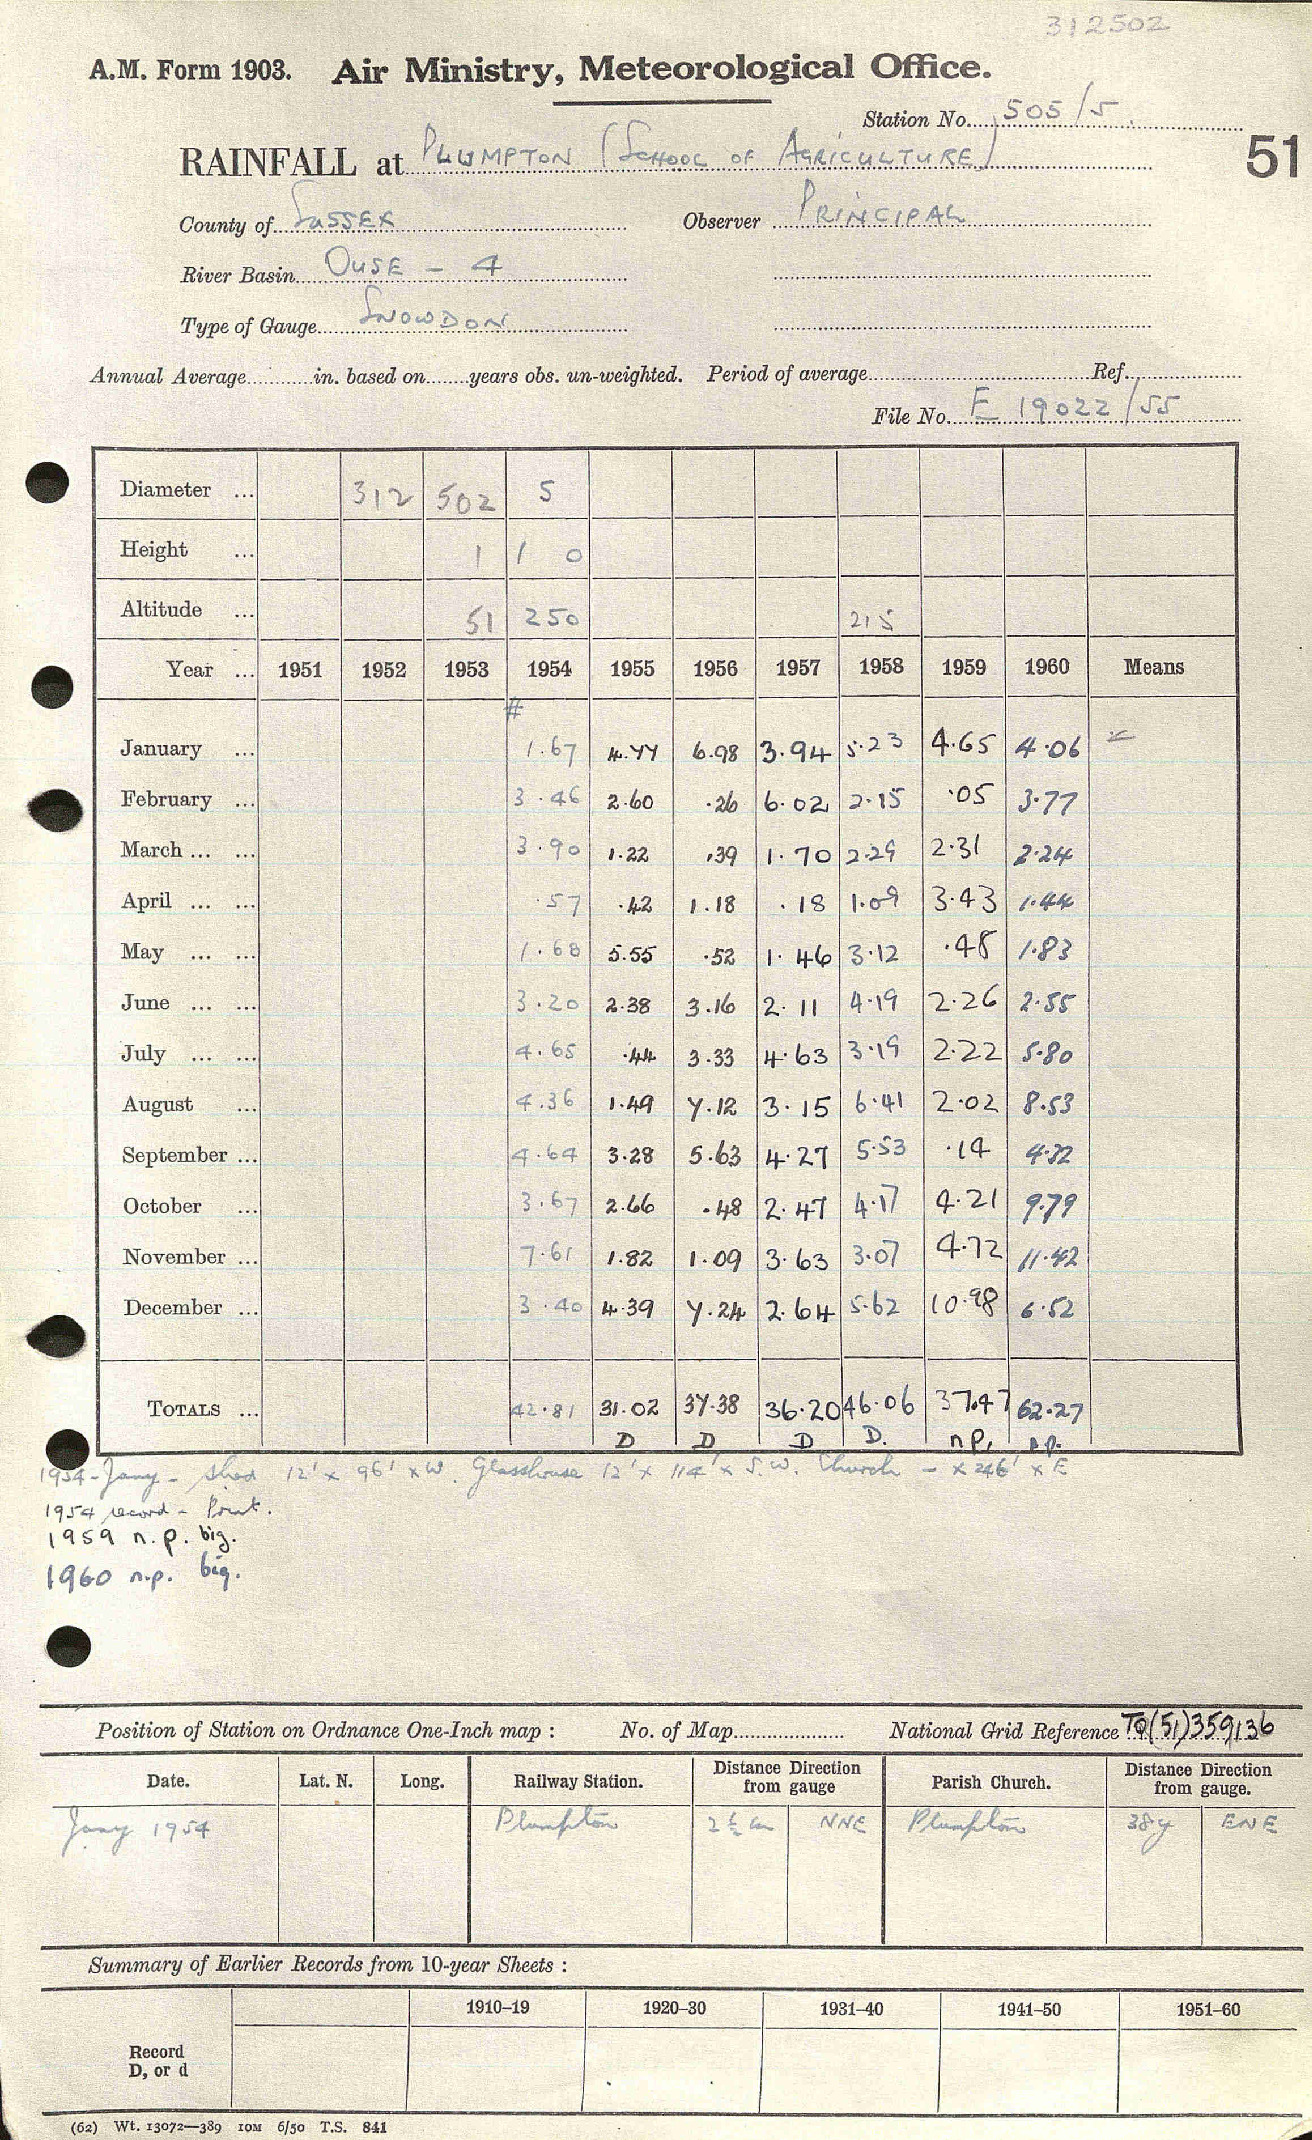 312502
A.M. Form 1903. Air Ministry, Meteorological Office.
Station No. 505/5
RAINFALL at PLUMPTON (SCHOOL OF AGRICULTURE) 51
County of SUSSEX Observer PRINCIPAL
River Basin OUSE - 4
Type of Gauge SNOWDON
Annual Average in. based on years obs. un-weighted. Period of average Ref.
File No. E 19022/55
Diameter ... 312 502 5
Height ... 1 1 0
Altitude ... 51 250 215
Year ... 1951 1952 1953 1954 1955 1956 1957 1958 1959 1960 Means
#
January ... 1.67 4.77 6.98 3.94 5.23 4.65 4.06
February ... 3.46 2.60 .26 6.02 2.15 .05 3.77
March ... ... 3.90 1.22 .39 1.70 2.29 2.31 2.24
April ... ... .57 .42 1.18 .18 1.09 3.43 1.44
May ... ... 1.68 5.55 .52 1.46 3.12 .48 1.83
June ... ... 3.20 2.38 3.16 2.11 4.19 2.26 2.55
July ... ... 4.65 .44 3.33 4.63 3.19 2.22 5.80
August ... 4.36 1.49 7.12 3.15 6.41 2.02 8.53
September ... 4.64 3.28 5.63 4.27 5.53 .14 4.32
October ... 3.67 2.66 .48 2.47 4.17 4.21 9.79
November ... 7.61 1.82 1.09 3.63 3.07 4.72 11.42
December ... 3.40 4.39 7.24 2.64 5.62 10.98 6.52
TOTALS ... 42.81 31.02 37.38 36.20 46.06 37.47 62.27
D D D D. n.p. n.p.
1954 - Jany - shed 12' x 96' x W. Glasshouse 12' x 114' x S.W. Church - x 246' x E
1954 record - Print.
1959 n.p. big.
1960 n.p. big.
Position of Station on Ordnance One-Inch map : No. of Map National Grid Reference TQ(51)359136
Date. Lat. N. Long. Railway Station. Distance Direction from gauge Parish Church. Distance Direction from gauge.
Jany 1954 Plumpton 2½ m NNE Plumpton 38y ENE
Summary of Earlier Records from 10-year Sheets :
1910–19 1920–30 1931–40 1941–50 1951–60
Record
D, or d
(62) Wt. 13072—389 10M 6/50 T.S. 841